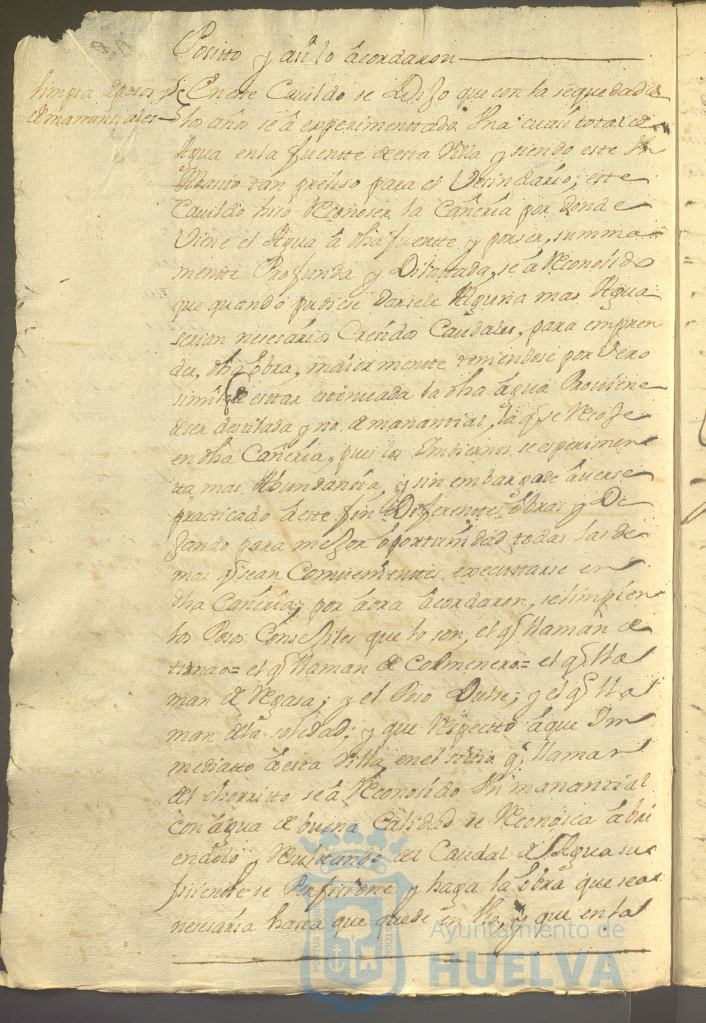 Positto y asi lo acordaron
limpia de posos y
de manantiales
En este Cavildo se Dijo que con la sequedad de
los años se à experimentado Una cuasi total de
Agua en la fuente de esta Villa y siendo este
tan presiso para el Vesindario; este
Cavildo hiso Reconoser la Cañeria por donde
Viene el Agua â dha fuente, y por ser, summa
mente Profunda y Dilattada, se à Reconosido
que quando pudiese darsele Alguna mas Agua
serian nesesarios Cresidos Caudales, para empren
der, dha obra, maiormente teniendose por Vero
simil qe estar estenuada la dha agua Proviene
de ser destilada y no de manantial, la qe se Recoje
en dha Cañeria, pues los Imbiernos se experimen
tta mas Abundansia, y sin embargo de averse
practicado â este fin Diferentes obras y De
jando para mejor oportunidad todas las de
mas qe sean Combenientes executarse en
dha Cañeria; por aora Acordaron, se limpien
los Posos Consejiles que lo son, el qe llaman de
el qe llaman de Colmenero= el qe lla
man de Vegasa; y el Poso Dulse; y el qe lla
man de la soledad; y que Respecto à que Im
mediatto â esta Villa, en el sitio qe llaman
del chorritto se â Reconosido Un manantial
con agua de buena Calidad se Reconosca abri
endolo y Resultando del Caudal de Agua su
fisiente se Perfisione y haga la obra que sea
nesesaria hasta que quede en Uso, y que en la
Ayuntamiento de
HUELVA